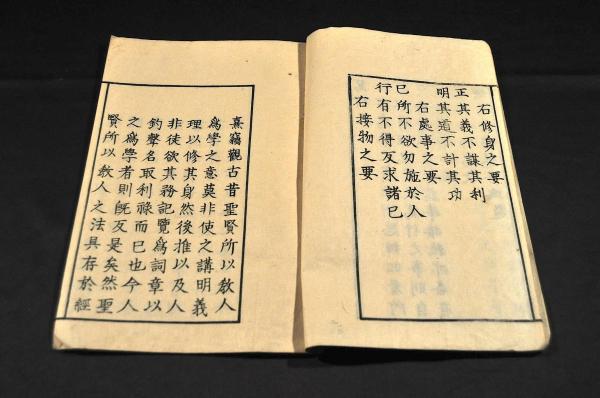 右修身之要
正其義不謀其利
明其道不計其功
右處事之要
己所不欲勿施於人
行有不得反求諸己
右接物之要
熹竊觀古昔聖賢所以教人
爲學之意莫非使之講明義
理以修其身然後推以及人
非徒欲其務記覽爲詞章以
釣聲名取利祿而已也今人
之爲學者則既反是矣然聖
賢所以教人之法具存於經